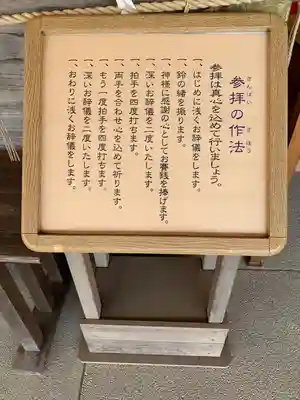 さんぱい さほう
参拝の作法
参拝は真心を込めて行いましょう。
一、はじめに浅くお辞儀をします。
一、鈴の緒を振ります。
一、神様に感謝の心としてお賽銭を捧げます。
一、深いお辞儀を二度いたします。
一、拍手を四度打ちます。
一、両手を合わせ心を込めて祈ります。
一、もう一度拍手を四度打ちます。
一、深いお辞儀を二度いたします。
一、おわりに浅くお辞儀をします。